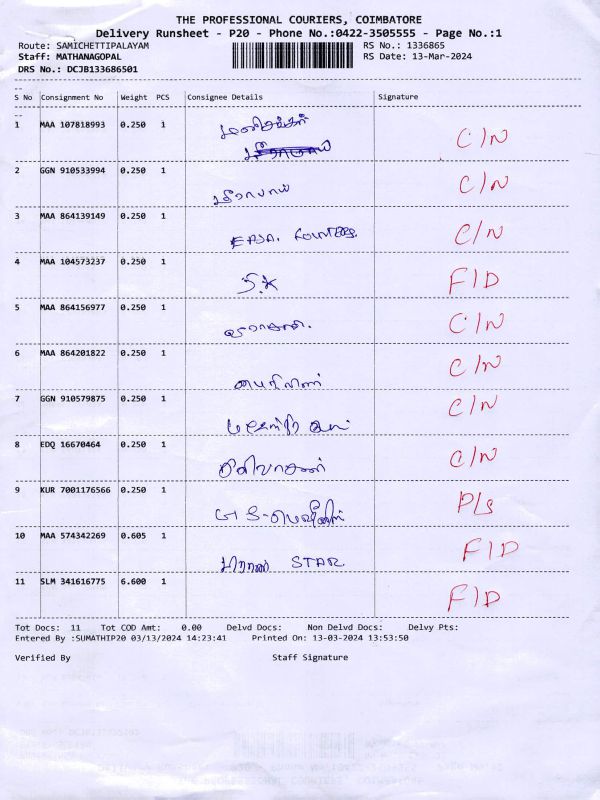 THE PROFESSIONAL COURIERS, COIMBATORE
Delivery Runsheet - P20 - Phone No.:0422-3505555 - Page No.:1
Route: SAMICHETTIPALAYAM RS No.: 1336865
Staff: MATHANAGOPAL RS Date: 13-Mar-2024
DRS No.: DCJB133686501
S No Consignment No Weight PCS Consignee Details Signature
1 MAA 107818993 0.250 1 C/N
2 GGN 910533994 0.250 1 C/N
3 MAA 864139149 0.250 1 C/N
4 MAA 104573237 0.250 1 S.K F/D
5 MAA 864156977 0.250 1 C/N
6 MAA 864201822 0.250 1 C/N
7 GGN 910579875 0.250 1 C/N
8 EDQ 16670464 0.250 1 C/N
9 KUR 7001176566 0.250 1 P/s
10 MAA 574342269 0.605 1 STAR F/D
11 SLM 341616775 6.600 1 F/D
Tot Docs: 11 Tot COD Amt: 0.00 Delvd Docs: Non Delvd Docs: Delvy Pts:
Entered By :SUMATHIP20 03/13/2024 14:23:41 Printed On: 13-03-2024 13:53:50
Verified By Staff Signature